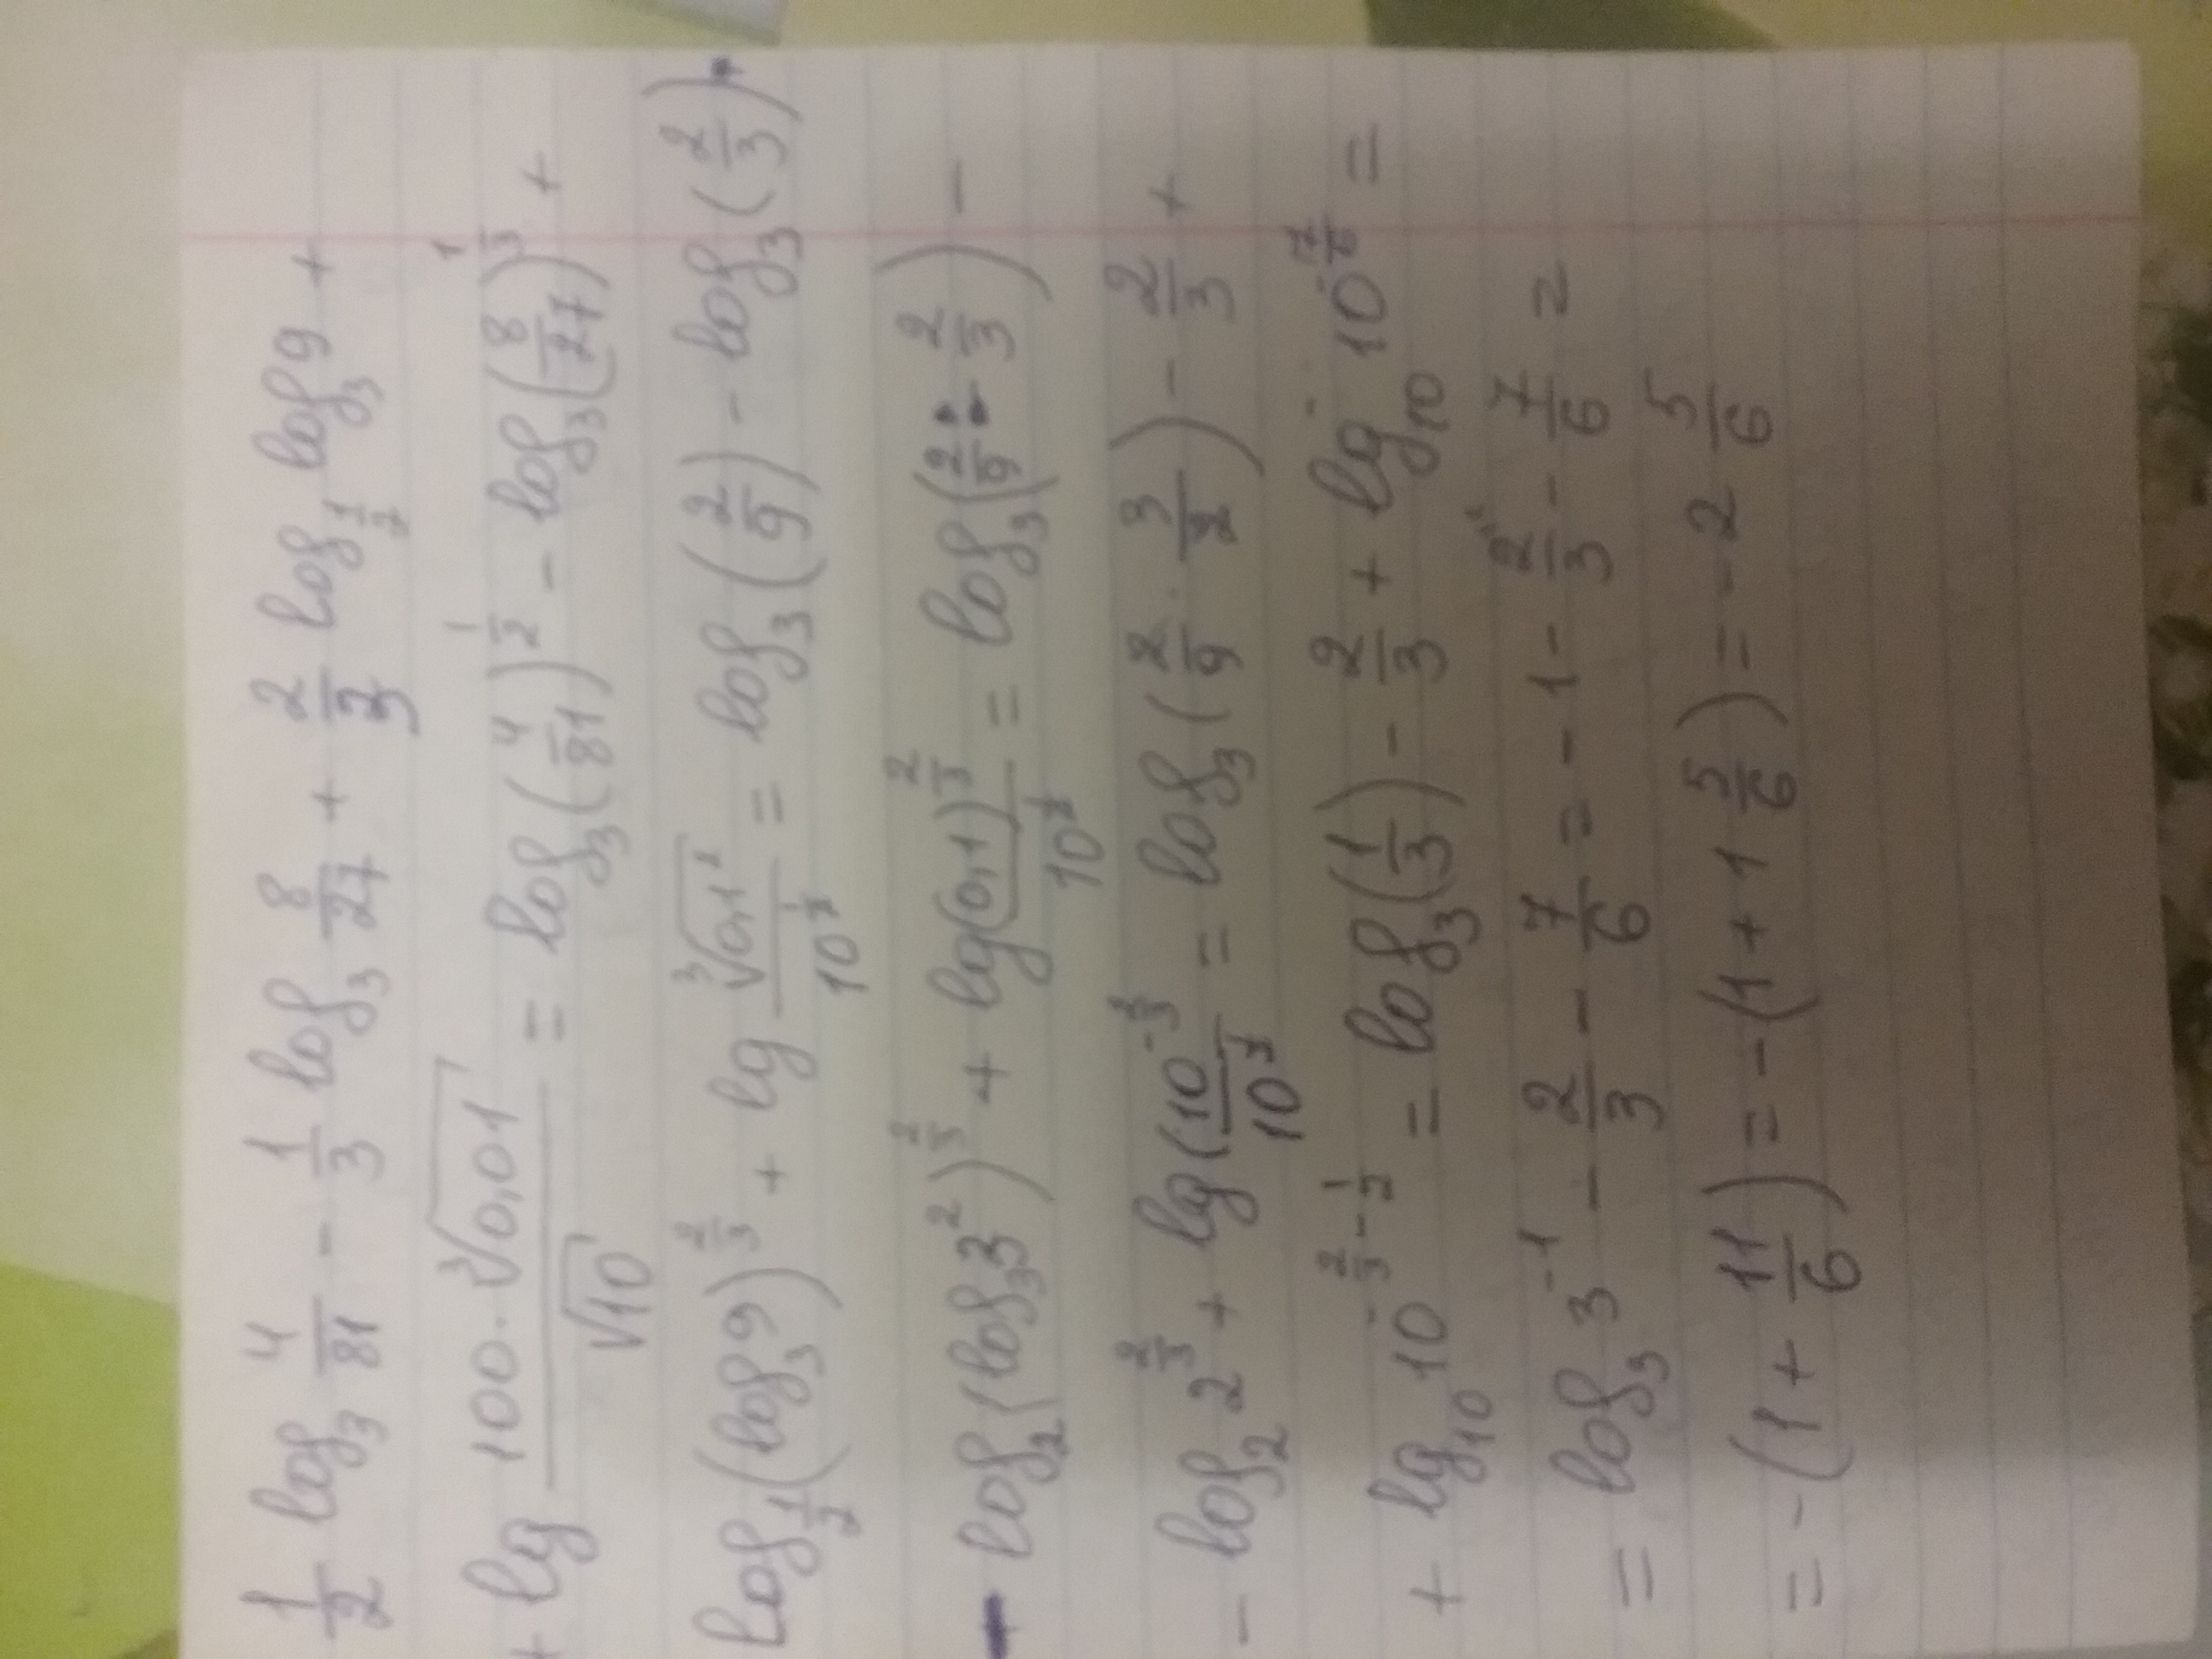 1/2 log_3 4/81 - 1/3 log_3 8/27 + 2/3 log_{1/2} log_3 9 +
+ lg (100·∛(0,01))/√10 = log_3(4/81)^{1/2} - log_3(8/27)^{1/3} +
log_{1/2}(log_3 9)^{2/3} + lg ∛(0,1²)/10^{1/2} = log_3(2/9) - log_3(2/3) +
- log_2(log_3 3²)^{2/3} + lg (0,1)^{2/3}/10^{1/2} = log_3(2/9 : 2/3) -
- log_2 2^{2/3} + lg(10^{-2/3}/10^{1/2}) = log_3(2/9 · 3/2) - 2/3 +
+ lg_{10} 10^{-2/3 - 1/2} = log_3(1/3) - 2/3 + lg_{10} 10^{-7/6} =
= log_3 3^{-1} - 2/3 - 7/6 = -1 - 2/3 - 7/6 =
= -(1 + 11/6) = -(1 + 1 5/6) = -2 5/6